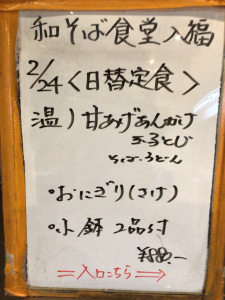 和そば食堂入福
2/24<日替定食>
温)甘あげあんかけ
玉子とじ
そば・うどん
・おにぎり(さけ)
・小鉢 2品付
¥880.-
=入口こちら=⇒